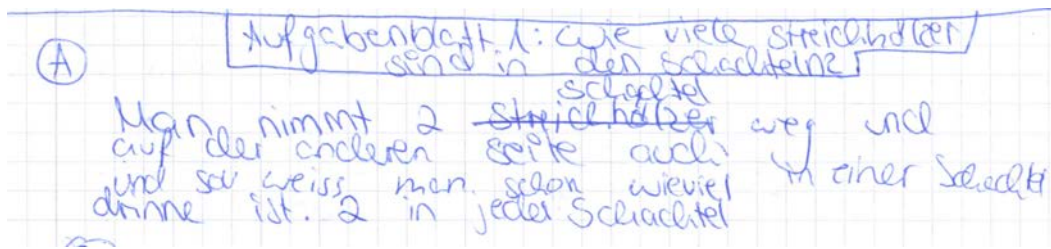 A Aufgabenblatt 1: wie viele streichhölzer
sind in den schachteln?
schachtel
Man nimmt 2 streichhölzer weg und
auf der anderen seite auch
und so weiss man schon wieviel in einer Schachtel
drinne ist. 2 in jeder Schachtel